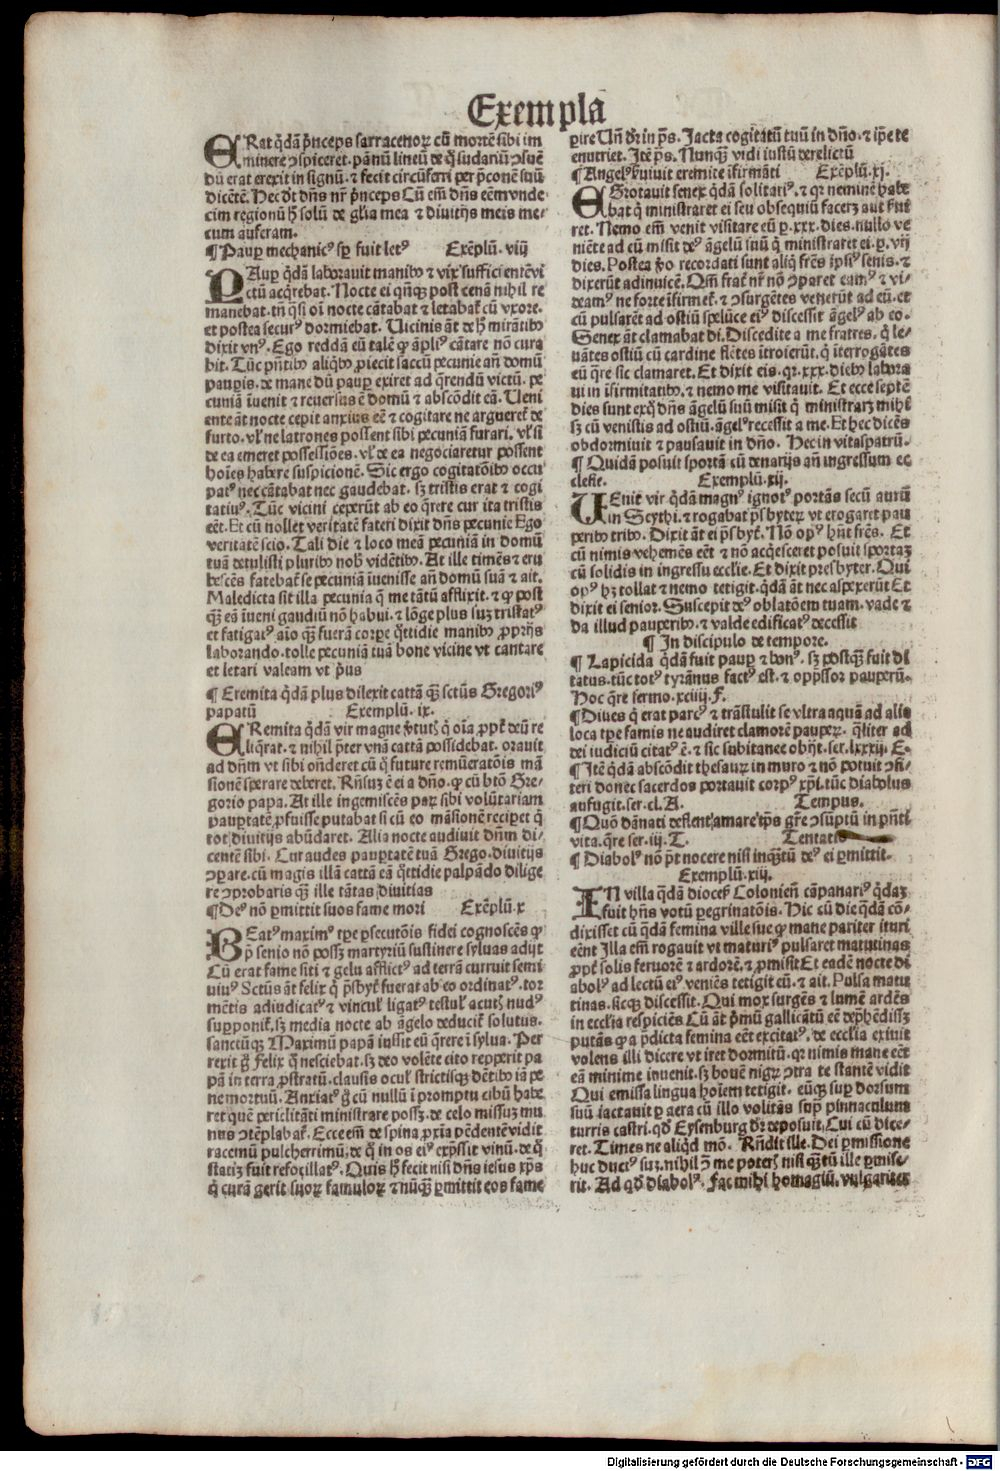 Exempla
ERat q̃dã p̃nceps sarracenoꝝ cũ mortẽ sibi im
minere ↄspiceret. pãnũ lineũ de q̃ sudariũ ↄsue
dũ erat erexit in signũ. ⁊ fecit circũferri per p̃conẽ suũ
dicẽtẽ. Hec dr̃t dñs nr̃ p̃nceps Cũ em̃ dñs eẽm vnde
cim regionũ hͦ solũ de gl̃ia mea ⁊ diuitijs meis me-
cum auferam.
¶ Paup̱ mechanicꝰ sp̱ fuit letꝰ Exẽplũ. viij
PAup̱ q̃dã laborauit manibꝰ ⁊ vix sufficientẽ vi
ctũ acq̃rebat. Nocte ei qñqꝫ post cenã nihil re
manebat. tñ q̃si oĩ nocte cãtabat ⁊ letabat᷑ cũ vxore.
et postea securꝰ dormiebat. Uicinis ãt de hͦ mirãtibꝰ
dixit vnꝰ. Ego reddã eũ talẽ ꝙ ãpliꝰ cãtare nõ cura
bit. Tũc pñtibꝰ aliq̃bꝰ ꝓiecit saccũ pecunie añ domũ
paup̱is. de mane dũ paup̱ exiret ad q̃rendũ victũ. pe
cuniã ĩuenit ⁊ reuersus ẽ domũ ⁊ abscõdit eã. Ueni
ente ãt nocte cepit anxius eẽ ⁊ cogitare ne arguerет᷑ de
furto. vl̃ ne latrones possent sibi pecuniã furari. vl̃ si
de ea emeret possessiões. vl̃ de ea negociaretur possent
hoĩes habere suspicionẽ. Sic ergo cogitatõibꝰ occu
patꝰ nec cãtabat nec gaudebat. sꝫ tristis erat ⁊ cogi
tatiuꝰ. Tũc vicini ceperũt ab eo q̃rere cur ita tristis
eẽt. Et cũ nollet veritatẽ fateri dixit dñs pecunie Ego
veritatẽ scio. Tali die ⁊ loco meã pecuniã in domũ
tuã detulisti pluribꝰ nob̃ vidẽtibꝰ. At ille timẽs ⁊ eru
bescẽs fatebat᷑ se pecuniã ĩuenisse añ domũ suã ⁊ ait.
Maledicta sit illa pecunia q̃ me tãtũ afflixit. ⁊ ꝙ post
qꝫ̃ eã ĩueni gaudiũ nõ habui. ⁊ lõge plus suꝫ tristatꝰ
et fatigatꝰ aĩo qꝫ̃ fuerã corꝑe q̃ttidie manibꝰ ꝓprijs
laborando. tolle pecuniã tuã bone vicine vt cantare
et letari valeam vt p̃us
¶ Eremita q̃dã plus dilexit cattã qꝫ̃ sctũs Gregoriꝰ
papatũ Exemplũ. ix.
ERemita q̃dã vir magne ṽtutꝭ q̃ oĩa ꝓpt᷑ deũ re
liq̃rat. ⁊ nihil p̃ter vnã cattã possidebat. orauit
ad dñm vt sibi oñderet cũ q̃ future remũeratõis mã
sionẽ sperare deberet. Rñsuꝫ ẽ ei a dño. ꝙ cũ btõ Gre-
gorio papa. At ille ingemiscẽs paꝝ sibi volũtariam
paup̱tatẽ ꝓfuisse putabat si cũ eo mãsionẽ recip̱et q̃
tot diuitijs abũdaret. Alia nocte audiuit dñm di-
centẽ sibi. Cur audes paup̱tatẽ tuã Grego. diuitijs
ↄp̱are. cũ magis illã cattã eã q̃ttidie palpãdo dilige
re ↄprobaris qꝫ̃ ille tãtas diuitias
¶ Deꝰ nõ ꝑmittit suos fame mori Exẽplũ. x
BEatꝰ maximꝰ tꝑe ꝑsecutõis fidei cognoscẽs ꝙ
p̃ senio nõ possꝫ martyriũ sustinere syluas adijt
Cũ erat fame siti ⁊ gelu afflictꝰ ad terrã curruit semi
uiuꝰ Sctũs ãt felix q̃ p̃sbyt᷑ fuerat ab eo ordinatꝰ. tor
mẽtis adiudicatꝰ ⁊ vincul̃ ligatꝰ testul̃ acutꝭ nudꝰ
supponit᷑. sꝫ media nocte ab ãgelo educit᷑ solutus.
sanctũqꝫ Maximũ papã iussit eũ q̃rere ĩ sylua. Per
rexit g̃ Felix q̃ nesciebat. sꝫ deo volẽte cito repperit pa
pã in terra ꝓstratũ. clausis ocul̃ strictisqꝫ dẽtibꝰ iã pe
ne mortuũ. Anxiatꝰ g̃ cũ nullũ ĩ promptu cibũ habe
ret quẽ periclitãti ministrare possꝫ. de celo missuꝫ mu
nus ↄtẽplabat᷑. Ecce em̃ de spina ꝓxĩa pẽdentẽ vidit
racemũ pulcherrimũ; de q̃ in os eiꝰ exp̃ssit vinũ. de q̃
statiꝫ fuit refocillatꝰ. Quis hͦ fecit nisi dñs iesus xp̃s
q̃ curã gerit suoꝝ famuloꝝ ⁊ nũqꝫ̃ ꝑmittit eos fame
ꝑire Uñ dr̃ in ps̃. Jacta cogitatũ tuũ in dño. ⁊ ip̃e te
enutriet. Jtẽ ps̃. Nunqꝫ̃ vidi iustũ derelictũ
EGrotauit senex q̃dã solitariꝰ. ⁊ qꝛ neminẽ habe
bat q̃ ministraret ei seu obsequiũ facerꝫ aut fuie
ret. Nemo em̃ venit visitare eũ ꝑ. xxx. dies. nullo ve
niẽte ad eũ misit deꝰ ãgelũ suũ q̃ ministraret ei. ꝑ. vij
dies. Postea ṽo recordati sunt aliq̃ frẽs ip̃siꝰ senis. ⁊
dixerũt adinuicẽ.
deamꝰ ne forte ĩfirmet᷑. ⁊ ↄsurgẽtes venerũt ad eũ. et
cũ pulsarẽt ad ostiũ spelũce eiꝰ discessit ãgelꝰ ab eo.
Senex ãt clamabat di. Discedite a me fratres. q̃ le-
uãtes ostiũ cũ cardine flẽtes ĩtroierũt. q̃ ĩterrogãtes
eũ q̃re sic clamaret. Et dixit eis. qꝛ. xxx. diebꝰ labora
ui in ĩfirmitatibꝰ. ⁊ nemo me visitauit. Et ecce septẽ
dies sunt exq̃ dñs ãgelũ suũ misit q̃ ministrarꝫ mihi
sꝫ cũ venistis ad ostiũ. ãgelꝰ recessit a me. Et hec dicẽs
obdormiuit ⁊ pausauit in dño. Hec in vitaspatrũ.
¶ Quidã posuit sportã cũ denarijs añ ingressum ec
clesie. Exemplũ. xij.
UEnit vir q̃dã magnꝰ ignotꝰ portãs secũ aurũ
in Scythi. ⁊ rogabat p̃sbyteꝝ vt erogaret pau
peribꝰ tribꝰ. Dixit ãt ei p̃sbyt᷑. Nõ opꝰ hñt frẽs. Et
cũ nimis vehemẽs eẽt ⁊ nõ acq̃esceret posuit sportaꝫ
cũ solidis in ingressu ecclie. Et dixit presbyter. Qui
opꝰ hꝫ tollat ⁊ nemo tetigit. q̃dã ãt nec aspexerũt Et
dixit ei senior. Suscepit deꝰ oblatõem tuam. vade ⁊
da illud pauperibꝰ. ⁊ valde edificatꝰ decessit
¶ Jn discipulo de tempore.
¶ Lapicida q̃dã fuit paup̱ ⁊ bonꝰ. sꝫ postqꝫ̃ fuit di
tatus. tũc totꝰ tyrãnus factꝰ est. ⁊ opp̃ssor pauperũ.
Hoc q̃re sermo. xciiij. F.
¶ Diues q̃ erat parcꝰ ⁊ trãstulit se vltra aquã ad alia
loca tꝑe famis ne audiret clamorẽ paupeꝝ. q̃liter ad
dei iudiciũ citatꝰ ẽ. ⁊ sic subitanee obijt. ser. lxxxij. E.
¶ Jtẽ q̃dã abscõdit thesauꝝ in muro ⁊ nõ potuit ↄfi-
teri donec sacerdos portauit corpꝰ xp̃i. tũc diabolus
aufugit. ser. cl. A. Tempus.
¶ Quõ dãnati deflent amare tp̃s gr̃e ↄsũptũ in pñti
vita. q̃re ser. iij. T. Tentatio
¶ Diabolꝰ nõ põt nocere nisi inqꝫ̃tũ deꝰ ei ꝑmittit.
Exemplũ. xiij.
JN villa q̃dã dioceꝭ Colonieñ cãpanariꝰ q̃daꝫ
fuit hñs votũ ꝑegrinatõis. Hic cũ die q̃dã cõ-
dixisset cũ q̃dã femina ville sue ꝙ mane pariter ituri
eẽnt Jlla em̃ rogauit vt maturiꝰ pulsaret matutinas
ꝓpt᷑ solis feruorẽ ⁊ ardorẽ. ⁊ ꝓmisit Et eadẽ nocte di
abolꝰ ad lectũ eiꝰ veniẽs tetigit eũ. ⁊ ait. Pulsa matu
tinas. sicqꝫ discessit. Qui mox surgẽs ⁊ lumẽ ardẽs
in ecclia respiciẽs Cũ ãt p̃mũ gallicãtũ eẽ dep̃hẽdissꝫ
putãs ꝙ a p̃dicta femina eẽt excitatꝰ. de ecclia exiuit
volens illi dicere vt iret dormitũ. qꝛ nimis mane eẽt
eã minime inuenit. sꝫ bouẽ nigꝝ ↄtra te stantẽ vidit
Qui emissa lingua hoĩem tetigit. eũqꝫ sup̱ dorsum
suũ iactauit ꝑ aera cũ illo volitãs sup̱ pinnaculum
turris castri. qd̃ Eysenburg dr̃ deposuit. Cui cũ dice-
ret. Times ne aliqd̃ mõ. Rñdit ille. Dei ꝑmissione
huc ductꝰ suꝫ. nihil ↄ̃ me poteris nisi qꝫ̃tũ ille ꝑmise-
rit. Ad qd̃ diabolꝰ. Fac mihi homagiũ. vulgariter
Digitalisierung gefördert durch die Deutsche Forschungsgemeinschaft - DFG